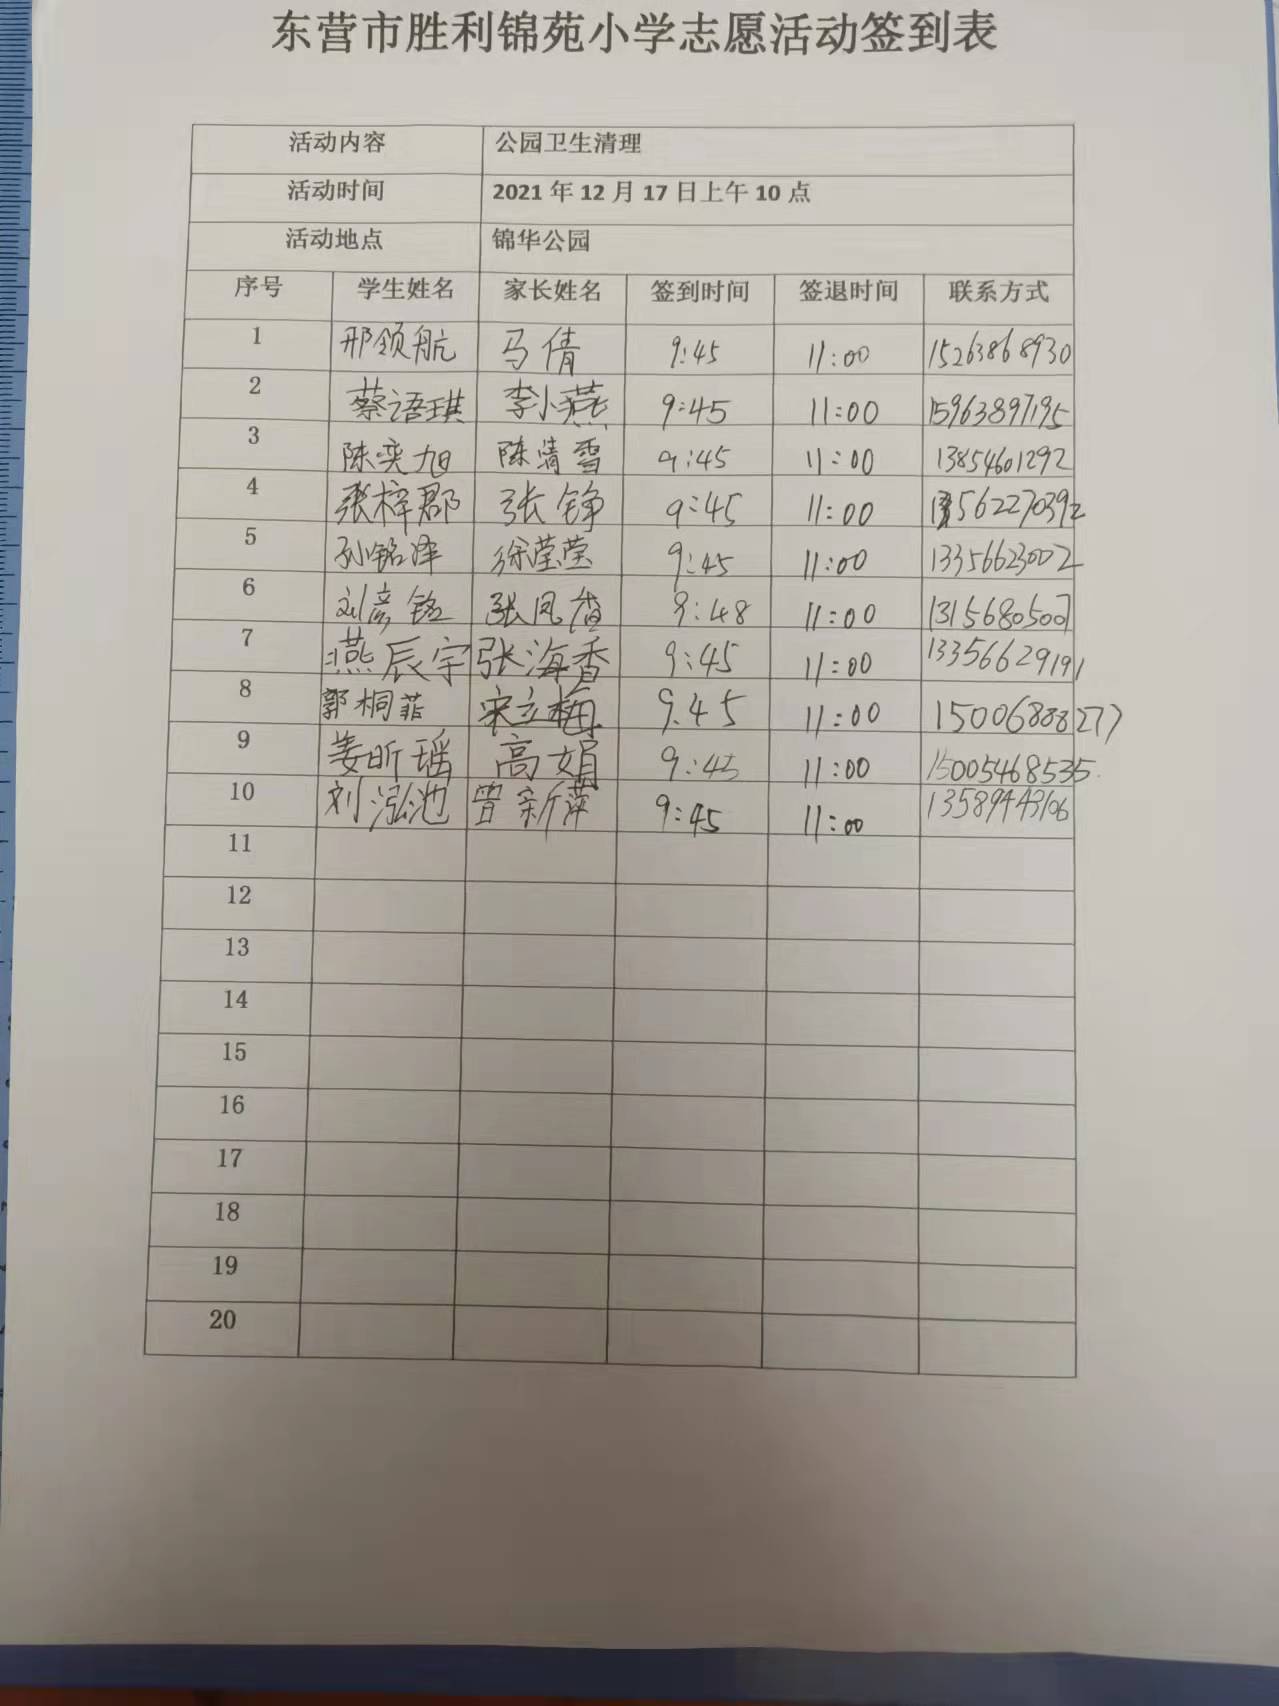 东营市胜利锦苑小学志愿活动签到表
活动内容 公园卫生清理
活动时间 2021 年 12 月 17 日上午 10 点
活动地点 锦华公园
序号 学生姓名 家长姓名 签到时间 签退时间 联系方式
1 邢领航 马倩 9:45 11:00 15263868930
2 蔡语琪 李小燕 9:45 11:00 15963897195
3 陈奕旭 陈清雪 9:45 11:00 13854601292
4 张梓郡 张铮 9:45 11:00
5 孙铭泽 徐莹莹 9:45 11:00 13356623002
6 刘彦铭 张凤 9:48 11:00 13156805007
7 燕辰宇 张海香 9:45 11:00 13356629191
8 郭桐菲 宋立梅 9:45 11:00 15006888277
9 姜昕瑶 高娟 9:45 11:00 15005468535
10 刘泓池 曾新萍 9:45 11:00 13589443106
11
12
13
14
15
16
17
18
19
20